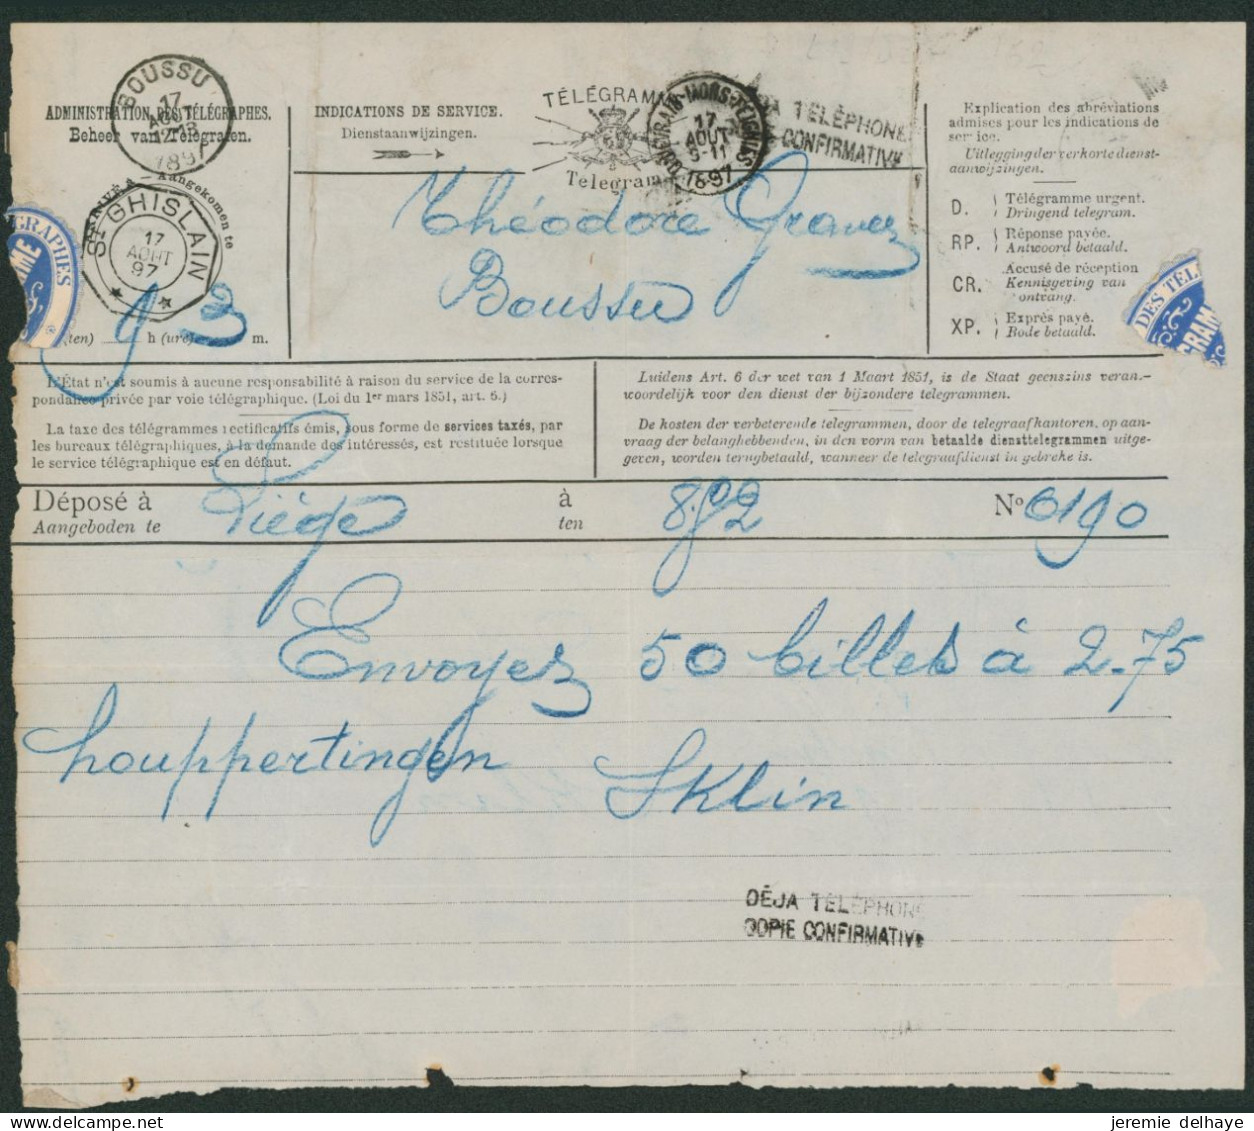 BOUSSU
17
AOUT
1897
ADMINISTRATION DES TÉLÉGRAPHES.
Beheer van Telegrafen.
ARRIVÉ À – Aangekomen te
ST GHISLAIN
17
AOUT
97
9 3
(ten) h (ure) m.
INDICATIONS DE SERVICE.
Dienstaanwijzingen.
TÉLÉGRAMME
Telegram
17
AOUT
1897
TÉLÉPHONE
CONFIRMATIVE
Théodore
Boussu
Explication des abréviations
admises pour les indications de
service.
Uitlegging der verkorte dienst-
aanwijzingen.
D. Télégramme urgent.
Dringend telegram.
RP. Réponse payée.
Antwoord betaald.
CR. Accusé de réception
Kennisgeving van
ontvang.
XP. Exprès payé.
Bode betaald.
DES TÉL
GRAM
GRAPHES
L'État n'est soumis à aucune responsabilité à raison du service de la corres-
pondance privée par voie télégraphique. (Loi du 1er mars 1851, art. 6.)
La taxe des télégrammes rectificatifs émis, sous forme de services taxés, par
les bureaux télégraphiques, à la demande des intéressés, est restituée lorsque
le service télégraphique est en défaut.
Luidens Art. 6 der wet van 1 Maart 1851, is de Staat geenszins verant-
woordelijk voor den dienst der bijzondere telegrammen.
De kosten der verbeterende telegrammen, door de telegraafkantoren, op aan-
vraag der belanghebbenden, in den vorm van betaalde diensttelegrammen uitge-
geven, worden terugbetaald, wanneer de telegraafdienst in gebreke is.
Déposé à Liége à 8.52 No 6190
Aangeboden te ten
Envoyez 50 billets à 2-75
houppertingen Sklin
DÉJA TÉLÉPHONÉ
COPIE CONFIRMATIVE
jeremie delhaye